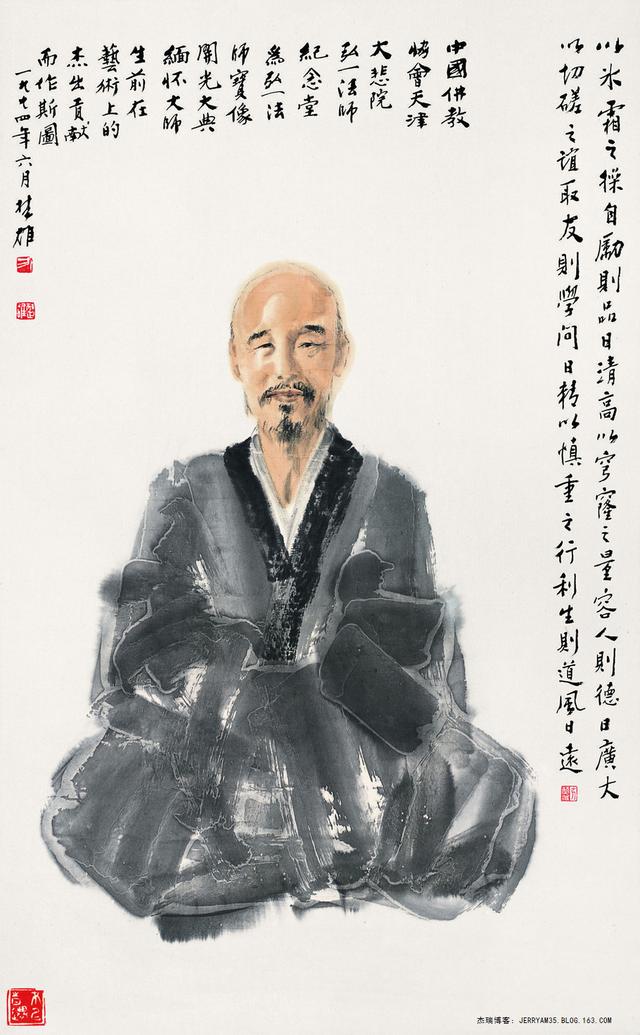 以冰霜之操自勵則品日清高以穹窿之量容人則德日廣大
以切磋之誼取友則學問日精以慎重之行利生則道風日遠
中國佛教
協會天津
大悲院
弘一法師
紀念堂
爲弘一法
師寶像
開光大典
緬怀大師
生前在
藝術上的
杰出貢献
而作斯圖
一九九四年六月桂雄
杰瑞博客: JERRYAM35.BLOG.163.COM